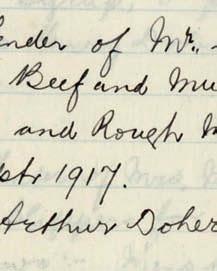 ender of Mr.
Beef and Mu
and Rough M
ptr 1917.
Arthur Doher